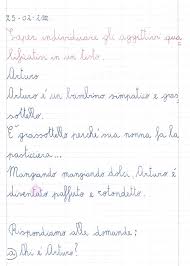 25-02-2
Saper individuare gli aggettivi qua
lificativi in un testo.
Arturo
Arturo é un bambino simpatico e gras
sottello.
É grassottello perché sua nonna fa la
pasticiera...
Mangiando mangiando dolci, Arturo é
diventato paffuto e rotondetto.
Rispondiamo alle domande:
a) Chi é Arturo?